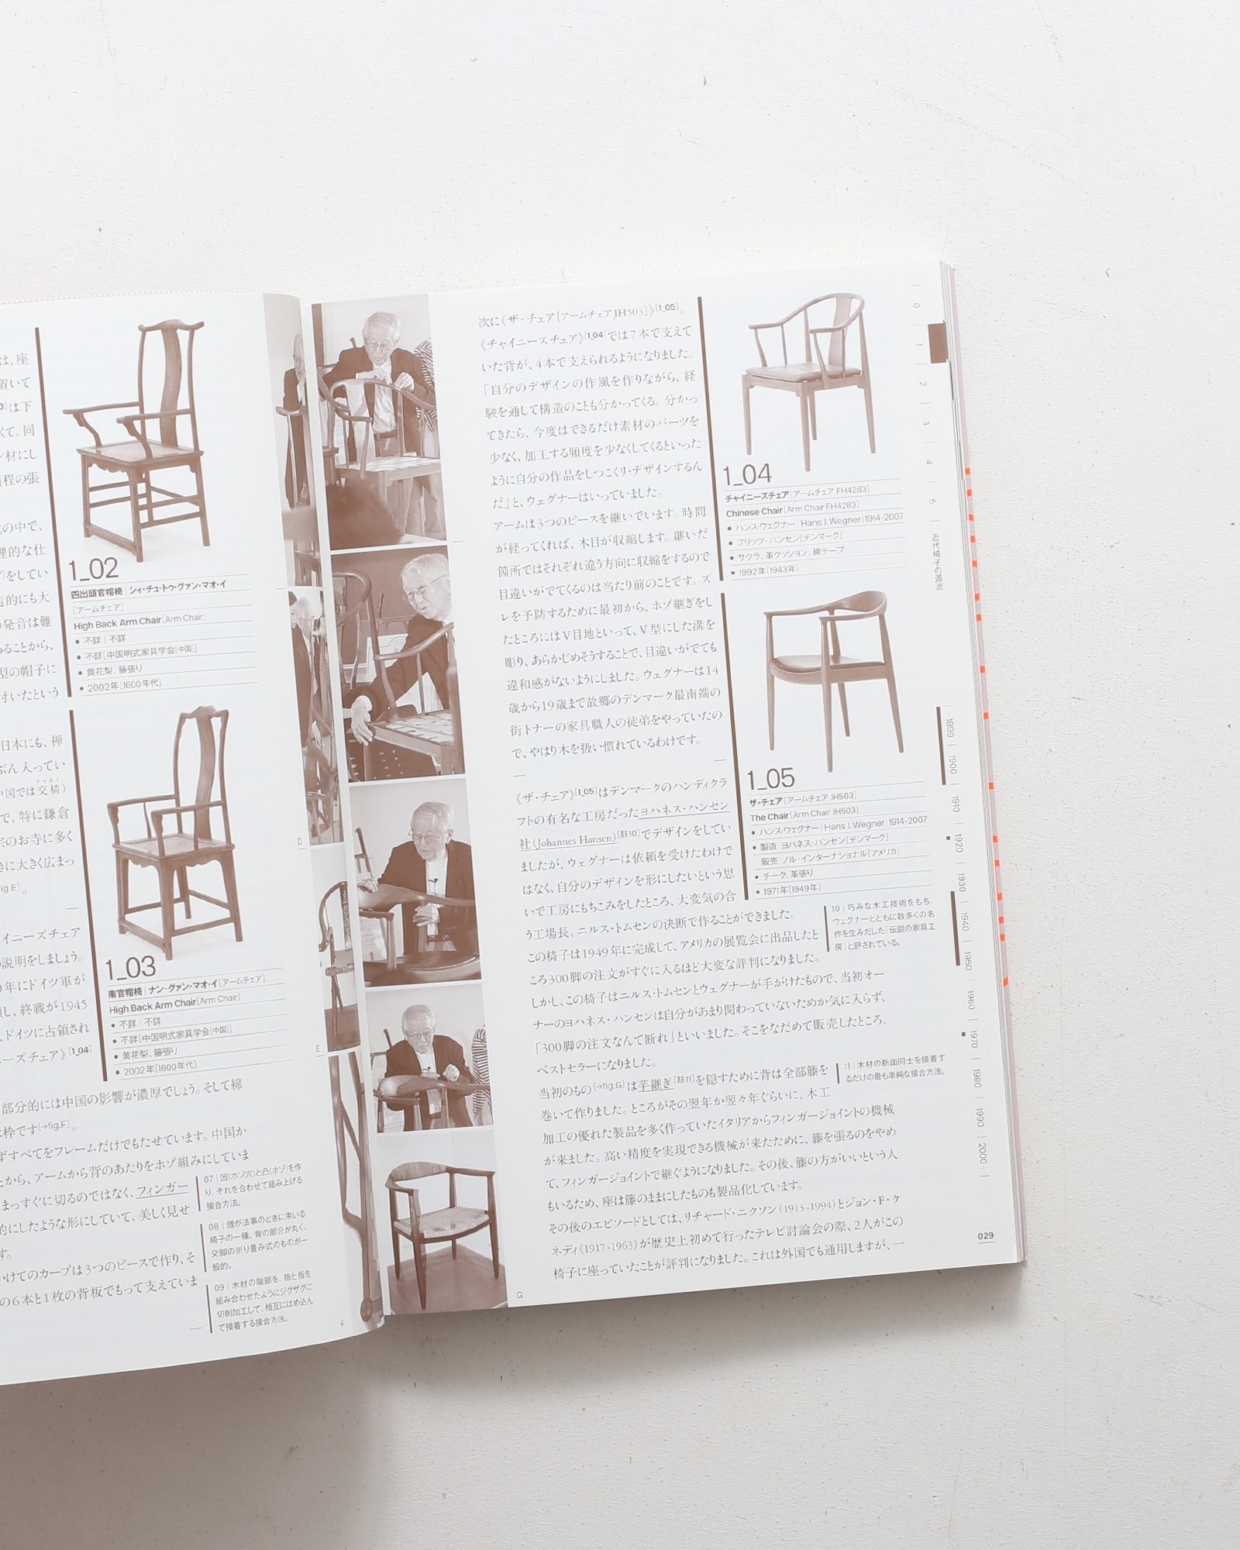 は、座
は下
くて、同
材にし
程の張
の中で、
理的な仕
をしてい
造的にも大
の発音は難
ることから、
型の帽子に
付いたという
日本にも、禅
ぶん入ってい
中国では交椅）
で、特に鎌倉
のお寺に多く
に大きく広まっ
fig.E]。
イニーズチェア
の説明をしましょう。
年にドイツ軍が
し、終戦が1945
ドイツに占領され
ーズチェア》[1_04]
部分的には中国の影響が濃厚でしょう。そして綿
枠です[→fig.F]。
ずすべてをフレームだけでもたせています。中国か
から、アームから背のあたりをホゾ組みにしていま
まっすぐに切るのではなく、フィンガー
的にしたような形にしていて、美しく見せ
す。
かけてのカーブは3つのピースで作り、そ
の6本と1枚の背板でもって支えていま
1_02
四出頭官帽椅｜シィ・チュ・トゥ・グァン・マオ・イ
[アームチェア]
High Back Arm Chair[Arm Chair]
● 不詳｜不詳
● 不詳[中国明式家具学会[中国]]
● 黄花梨、籐張り
● 2002年[1600年代]
1_03
南官帽椅｜ナン・グァン・マオ・イ[アームチェア]
High Back Arm Chair[Arm Chair]
● 不詳｜不詳
● 不詳[中国明式家具学会[中国]]
● 黄花梨、籐張り
● 2002年[1600年代]
07｜凹(ホゾ穴)と凸(ホゾ)を作
り、それを合わせて組み上げる
接合方法。
08｜僧が法事のときに用いる
椅子の一種。背の部分が丸く、
交脚の折り畳み式のものが一
般的。
09｜木材の端部を、指と指を
組み合わせたようにジグザグに
切削加工して、相互にはめ込ん
で接着する接合方法。
D
E
F
G
次に《ザ・チェア[アームチェア JH503]》[1_05]。
《チャイニーズチェア》[1_04]では7本で支えて
いた背が、4本で支えられるようになりました。
「自分のデザインの作風を作りながら、経
験を通して構造のことも分かってくる。分かっ
てきたら、今度はできるだけ素材のパーツを
少なく、加工する頻度を少なくしてくるといった
ように自分の作品をしつこくリ・デザインするん
だ」と、ウェグナーはいっていました。
アームは3つのピースを継いでいます。時間
が経ってくれば、木目が収縮します。継いだ
箇所ではそれぞれ違う方向に収縮をするので
目違いがでてくるのは当たり前のことです。ズ
レを予防するために最初から、ホゾ継ぎをし
たところにはV目地といって、V型にした溝を
彫り、あらかじめそうすることで、目違いがでても
違和感がないようにしました。ウェグナーは14
歳から19歳まで故郷のデンマーク最南端の
街トナーの家具職人の徒弟をやっていたの
で、やはり木を扱い慣れているわけです。
《ザ・チェア》[1_05]はデンマークのハンディクラ
フトの有名な工房だったヨハネス・ハンセン
社(Johannes Hansen)[註10]でデザインをしてい
ましたが、ウェグナーは依頼を受けたわけで
はなく、自分のデザインを形にしたいという思
いで工房にもちこみをしたところ、大変気の合
う工場長、ニルス・トムセンの決断で作ることができました。
この椅子は1949年に完成して、アメリカの展覧会に出品したと
ころ300脚の注文がすぐに入るほど大変な評判になりました。
しかし、この椅子はニルス・トムセンとウェグナーが手がけたもので、当初オー
ナーのヨハネス・ハンセンは自分があまり関わっていないためか気に入らず、
「300脚の注文なんて断れ」といいました。そこをなだめて販売したところ、
ベストセラーになりました。
当初のもの[→fig.G]は芋継ぎ[註11]を隠すために背は全部籐を
巻いて作りました。ところがその翌年か翌々年ぐらいに、木工
加工の優れた製品を多く作っていたイタリアからフィンガージョイントの機械
が来ました。高い精度を実現できる機械が来たために、籐を張るのをやめ
て、フィンガージョイントで継ぐようになりました。その後、籐の方がいいという人
もいるため、座は籐のままにしたものも製品化しています。
その後のエピソードとしては、リチャード・ニクソン(1913-1994)とジョン・F・ケ
ネディ(1917-1963)が歴史上初めて行ったテレビ討論会の際、2人がこの
椅子に座っていたことが評判になりました。これは外国でも通用しますが、一
1_04
チャイニーズチェア[アームチェア FH4283]
Chinese Chair[Arm Chair FH4283]
● ハンス・ウェグナー｜Hans J. Wegner｜1914-2007
● フリッツ・ハンセン[デンマーク]
● サクラ、革クッション、綿テープ
● 1992年[1943年]
1_05
ザ・チェア[アームチェア JH503]
The Chair[Arm Chair JH503]
● ハンス・ウェグナー｜Hans J. Wegner｜1914-2007
● 製造 ヨハネス・ハンセン[デンマーク]
販売 ノル・インターナショナル[アメリカ]
● チーク、革張り
● 1971年[1949年]
10｜巧みな木工技術をもち、
ウェグナーとともに数多くの名
作を生みだした「伝説の家具工
房」と評されている。
11｜木材の断面同士を接着す
るだけの最も単純な接合方法。
0
1
2
3
4
5
近代椅子の源流
1899
1900
1910
1920
1930
1940
1950
1960
1970
1980
1990
2000
029